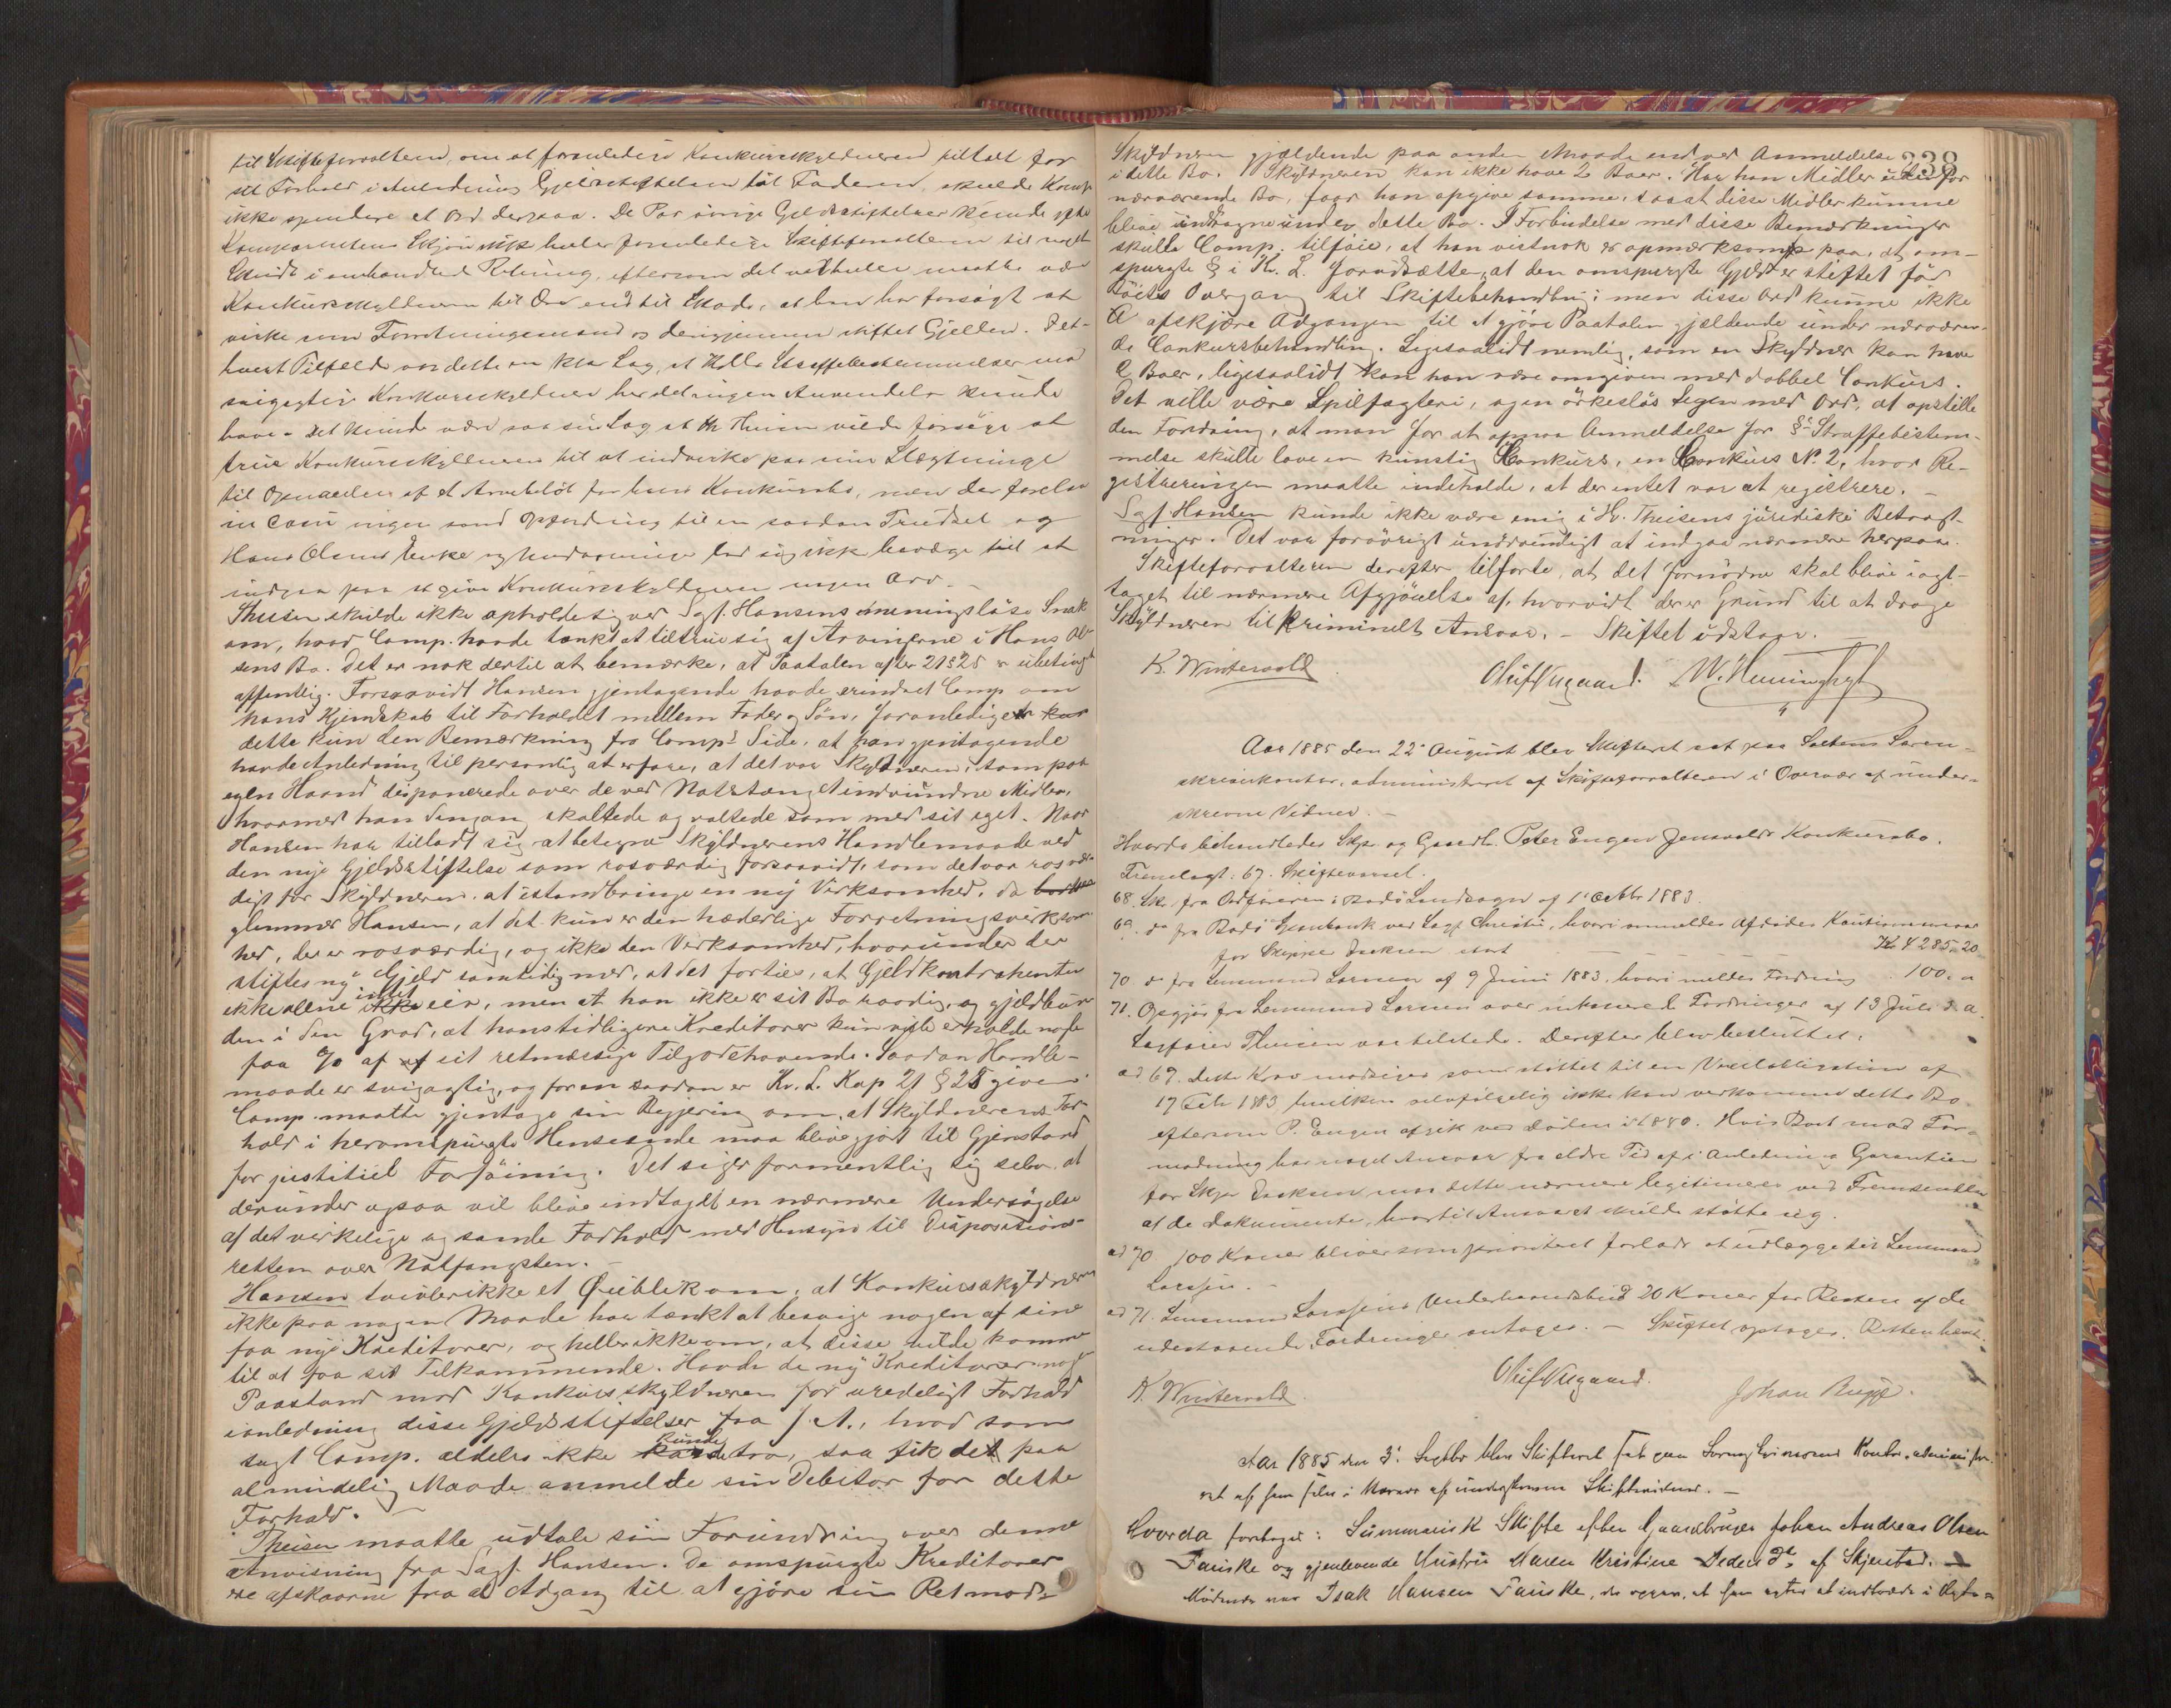 til Skifteforvalteren, om at foranledige Konkursskyldneren tiltalt for
sit Forhold i Anledning Gjeldsstiftelsen til Faderen, skulde Komp
ikke spendere et Ord derpaa. De Par øvrige Gjeldsstiftelser kunde efter
Komparentens Skjøn ikke heller foranledige Skifteforvalteren til noget
Skridt i omhandlede Retning, eftersom det vel heller maatte være
Konkursskyldneren til Ære end til Skade, at han har forsøgt at
virke som Forretningsmand og derigjennem stiftet Gjelden. I et-
hvert Tilfælde var dette en klar Sag, at Kvl's Straffebestemmelser mod
svigagtige Konkursskyldner her aldeles ingen Anvendelse kunde
have. Det kunde være saa sin Sag at Hr Theisen vilde forsøge at
true Konkursskyldneren til at indvirke paa sine Slægtninge
til Opnaaelse af et Arvebeløb for hans Konkursbo, men der forelaa
in casu ingen sand Opfordring til en saadan Trudsel og
Hans Olsens Enke og Undarvinger lod sig ikke bevæge til at
indgaa paa at give Konkursskyldneren nogen Arv. –
Theisen skulde ikke opholde sig ved Sgf. Hansens meningsløse Snak
om, hvad Comp. havde tænkt at tiltrue sig af Arvingerne i Hans Ol-
sens Bo. Det er nok dertil at bemærke, at Paatalen efter 21 § 25 er ubetinget
offentlig. Forsaavidt Hansen gjentagende havde erindret Comp om
hans Kjendskab til Forholdet mellem Fader og Søn, foranlediger
dette kun den Bemærkning fra Comp's Side, at han gjentagende
havde Anledning til personlig at erfare, at det var Skyldneren, som paa
egen Haand disponerede over de ved Notstænget indvundne Midler,
hvormed han dengang skaltede og valtede som med sit eget. Naar
Hansen har tilladt sig at betegne Skyldnerens Handlemaade ved
den nye Gjeldsstiftelse som rosværdig forsaavidt, som det var rosvær-
digt for Skyldneren at istandbringe en ny Virksomhed, da
glemmer Hansen, at det kun er den hæderlige Forretningsvirksom-
hed, der er rosværdig, og ikke den Virksomhed, hvorunder der
stiftes ny Gjeld samtidig med, at det forties, at Gjeldkontrahenten
ikke alene intet eier, men at han ikke er sit Bo raadig, og gjeldbun-
den i den Grad, at hans tidligere Kreditorer kun ville erholde nogle
faa % af sit retmæssige Tilgodehavende. Saadan Handle-
maade er svigagtig, og for en saadan er Kr. L. Kap 21 § 25 given.
Comp. maatte gjentage sin Begjering om, at Skyldnerens For-
hold i heromspurgte Henseende maa blive gjort til Gjenstand
for justitiel Forføining. Det siger formentlig sig selv, at
derunder ogsaa vil blive indtaget en nærmere Undersøgelse
af det virkelige og sande Forhold med Hensyn til Dispositions-
retten over Notfangsten. –
Hansen tvivler ikke et Øieblik om, at Konkursskyldneren
ikke paa nogen Maade har tænkt at besvige nogen af sine
faa nye Kreditorer, og heller ikke om, at disse vilde komme
til at faa sit Tilkommende. Havde de ny Kreditorer nogen
Paastand mod Konkursskyldneren for uredeligt Forhold
i anledning disse Gjeldsstiftelser fra J. A., hvad som
sagt Comp. aldeles ikke kunde tro, saa fik det paa
almindelig Maade anmelde sin Debitor for dette
Forhold. –
Theisen maatte udtale sin Forundring over denne
Anvisning fra Sagf. Hansen. De omspurgte Kreditorer
ere afskaarne fra al Adgang til at gjøre sin Ret mod
238
Skyldneren gjældende paa anden Maade end ved Anmeldelse
i dette Bo. Skyldneren kan ikke have 2 Boer. Har han Midler udenfor
nærværende Bo, faar han opgive samme, saa at disse Midler kunne
blive inddragne under dette Bo. I Forbindelse med disse Bemærkninger
skulle Comp. tilføie, at han vistnok er opmærksom paa, at om-
spurgte § i Kr. L. forudsætte, at den omspurgte Gjeld er stiftet før
Boets Overgang til Skiftebehandling; men disse Ord kunne ikke
afskjære Adgangen til at gjøre Paatalen gjældende under nærværen-
de Conkursbehandling. Ligesaalidt nemlig, som en Skyldner kan have
2 Boer, ligesaalidt kan han være omgiven med dobbel Conkurs.
Det ville være Spilfægteri, og en ørkesløs Legen med Ord, at opstille
den Fordring, at man for at opnaa Anmeldelse for §'s Straffebestem-
melse skulle lave en kunstig Conkurs, en Conkurs N. 2, hvor Re-
gistreringen maatte indeholde, at der intet var at registrere. –
Sgf. Hansen kunde ikke være enig i Hr. Theisens juridiske Betragt-
ninger. Det var forøvrigt unødvendigt at indgaa nærmere herpaa.
Skifteforvalteren derefter tilførte, at det fornødne skal blive iagt-
taget til nærmere Afgjørelse af, hvorvidt der er Grund til at drage
Skyldneren til Kriminelt Ansvar. – Skiftet udstaar.
K. Wintervold Oluf Aagaard.
Aar 1885 den 22' August blev Skifteret sat paa Saltens Soren-
skriverkontor, administreret af Skifteforvalteren i Overvær af under-
skrevne Vidner. –
Hvorda behandledes Skpr. og Gaardb. Peter Engen Jensvolds Konkursbo.
Fremlagt: 67. Skiftevarsel.
68. Sk. fra Ordføreren i Bodø Landsogn af 1' Octbr 1883.
69. do fra Bodø Sparebank ved Sagf. Christie, hvori anmeldes Afdødes Kautionsansvar
for Skipper Isaksen stort Kr 4285.20.
70 do fra Lensmand Larssen af 9 Juni 1883, hvori meldes Fordring 100. "
71. Opgjør fra Lensmand Larssen over inkasserede Fordringer af 13 Juli d. a.
Sagfører Theisen var tilstede. Derefter blev besluttet:
ad 69. Dette Krav modsiges som støttet til en Vexelobligation af
17 Feb 1883 hvilken selvfølgelig ikke kan vedkomme dette Bo
eftersom P. Engen afgik ved Døden i 1880. Hvis Boet mod For-
modning har noget Ansvar fra ældre Tid af i Anledning Garantien
for Skpr Isaksen maa dette nærmere legitimeres ved Fremsendelse
af de Dokumenter, hvortil Ansvaret skulde støtte sig.
ad 70. 100 Kroner bliver som prioriteret forlods at udlægge til Lensmand
Larssen. –
ad 71. Lensmand Larssens Underhaandsbud 20 Kroner for Resten af de
udestaaende Fordringer antages. – Skiftet optages. Retten hævet.
K. Wintervold. Oluf Aagaard. Johan Bugge.
Aar 1885 den 3' Septbr blev Skifteret sat paa Sorenskriverens Kontor, administre-
ret af ham selv i Nærvær af underskrevne Skiftevidner. –
Hvorda foretoges: Summarisk Skifte efter Gaardbruger Johan Andreas Olsen
Fauske og gjenlevende Hustru Maren Kristine Pedersdr. af Skjerstad. –
Mødende var Isak Hansen Fauske, der opgav, at han agter at indtræde i Ægte-